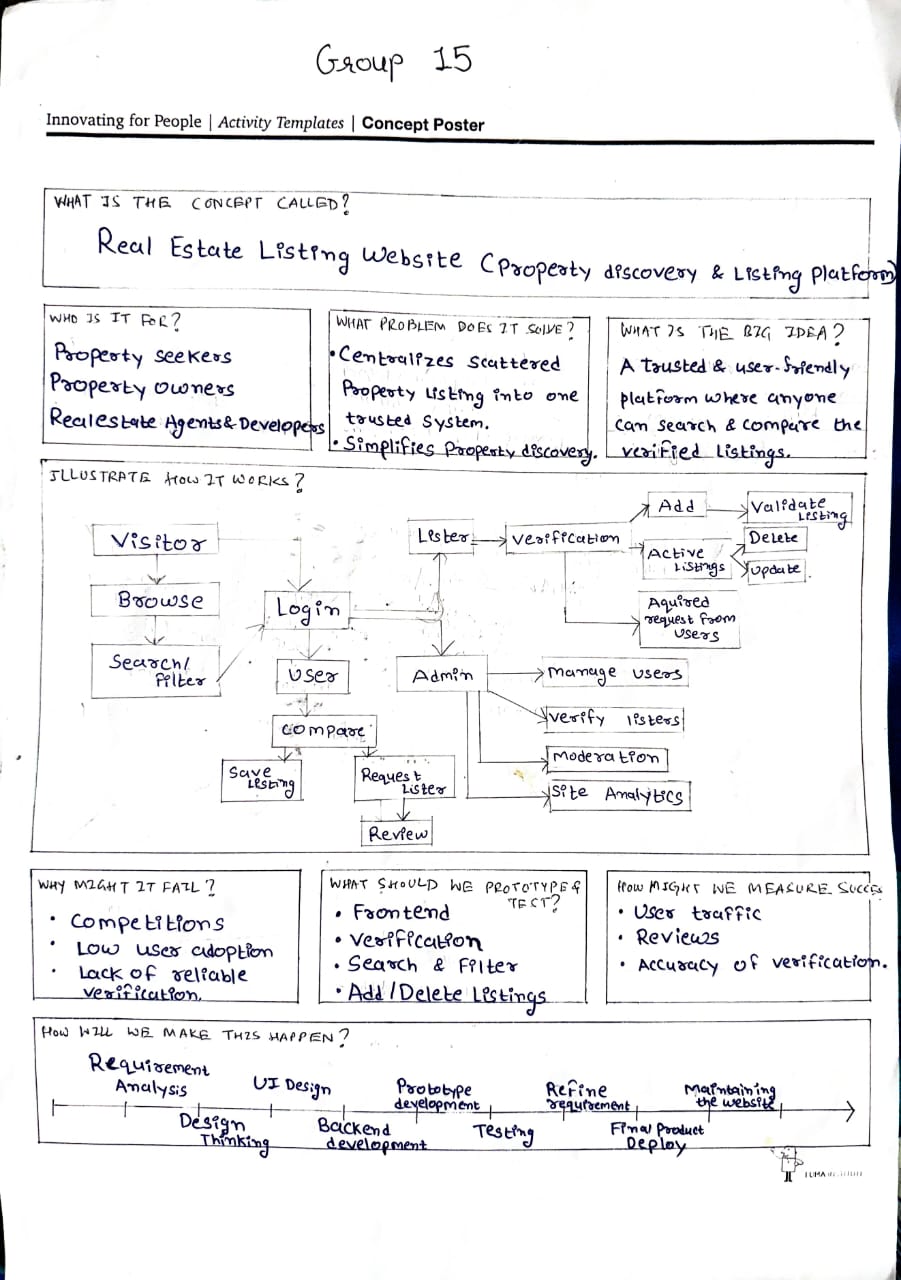 Group 15
Innovating for People | Activity Templates | Concept Poster
WHAT IS THE CONCEPT CALLED?
Real Estate Listing Website (Property discovery & Listing platform)
WHO IS IT FOR?
Property seekers
Property owners
Realestate Agents & Developers
WHAT PROBLEM DOES IT SOLVE?
• Centralizes scattered
Property Listing into one
trusted system.
• Simplifies Property discovery.
WHAT IS THE BIG IDEA?
A trusted & user-friendly
platform where anyone
can search & compare the
verified Listings.
ILLUSTRATE HOW IT WORKS?
Visitor
Browse
Search/
Filter
Login
User
Compare
Save
Listing
Request
Lister
Review
Lister
Verification
Add
Validate
Listing
Active
Listings
Delete
Update
Aquired
request from
users
Admin
Manage users
Verify listers
Moderation
Site Analytics
WHY MIGHT IT FAIL?
• Competitions
• Low user adoption
• Lack of reliable
verification.
WHAT SHOULD WE PROTOTYPE &
TEST?
• Frontend
• Verification
• Search & Filter
• Add/Delete Listings
HOW MIGHT WE MEASURE SUCCES
• User traffic
• Reviews
• Accuracy of verification.
HOW WILL WE MAKE THIS HAPPEN?
Requirement
Analysis
Design
Thinking
UI Design
Backend
development
Prototype
development
Testing
Refine
requirement
Final Product
Deploy
Maintaining
the website
LUMA